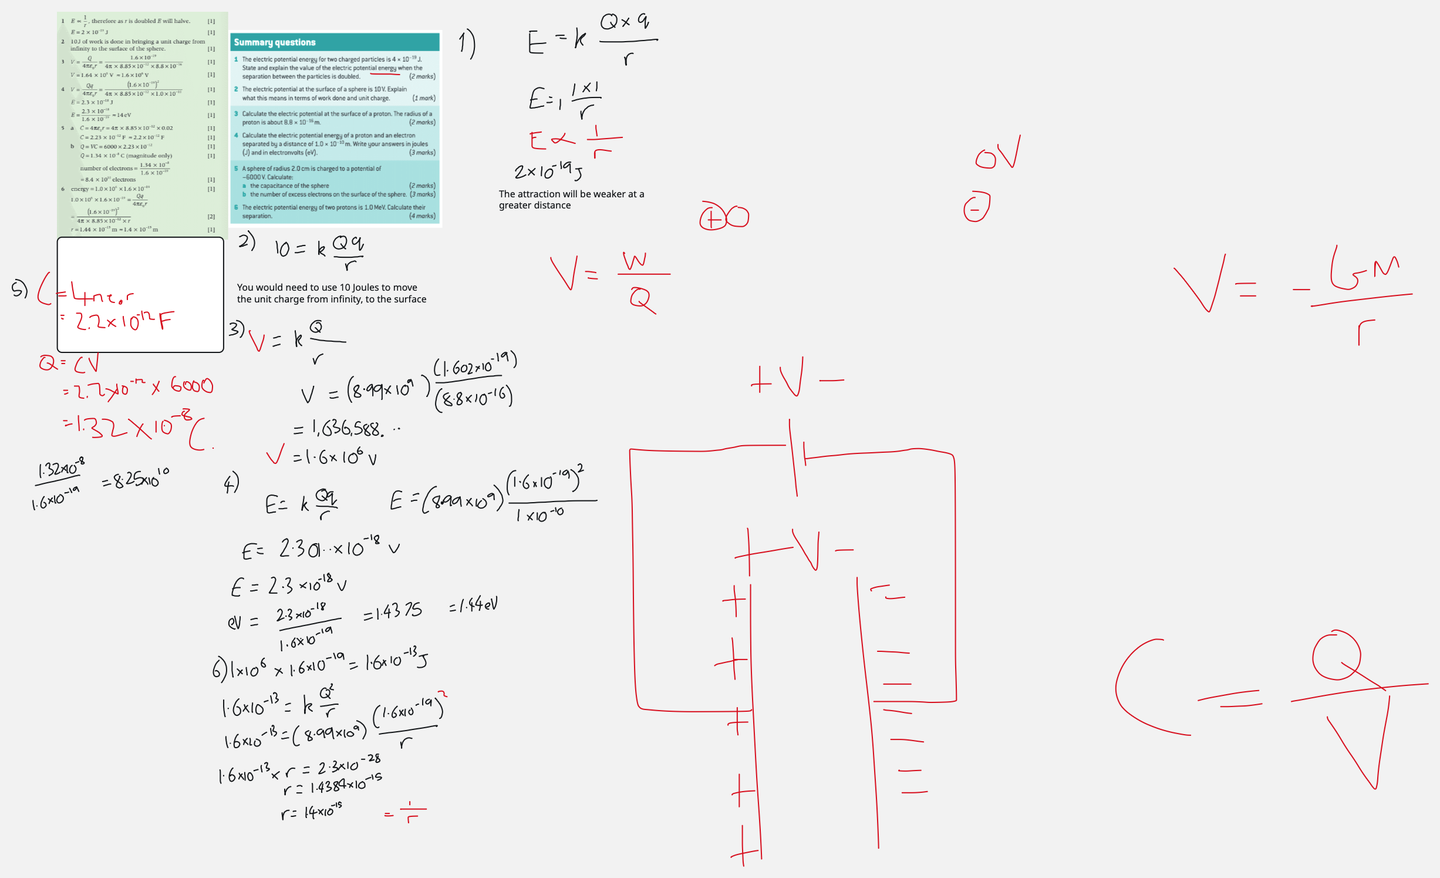 1 E = 1/r, therefore as r is doubled E will halve. [1]
E = 2 × 10⁻¹⁹ J [1]
2 10 J of work is done in bringing a unit charge from
infinity to the surface of the sphere. [1]
3 V = Q/4πε₀r = 1.6 × 10⁻¹⁹/4π × 8.85 × 10⁻¹² × 8.8 × 10⁻¹⁶ [1]
V = 1.64 × 10⁶ V = 1.6 × 10⁶ V [1]
4 V = Qq/4πε₀r = (1.6 × 10⁻¹⁹)²/4π × 8.85 × 10⁻¹² × 1.0 × 10⁻¹⁰ [1]
E = 2.3 × 10⁻¹⁸ J [1]
E = 2.3 × 10⁻¹⁸/1.6 × 10⁻¹⁹ = 14 eV [1]
5 a C = 4πε₀r = 4π × 8.85 × 10⁻¹² × 0.02 [1]
C = 2.23 × 10⁻¹² F = 2.2 × 10⁻¹² F [1]
b Q = VC = 6000 × 2.23 × 10⁻¹² [1]
Q = 1.34 × 10⁻⁸ C (magnitude only) [1]
number of electrons = 1.34 × 10⁻⁸/1.6 × 10⁻¹⁹
= 8.4 × 10¹⁰ electrons [1]
6 energy = 1.0 × 10⁶ × 1.6 × 10⁻¹⁹ [1]
1.0 × 10⁶ × 1.6 × 10⁻¹⁹ = Qq/4πε₀r
= (1.6 × 10⁻¹⁹)²/4π × 8.85 × 10⁻¹² × r [2]
r = 1.44 × 10⁻¹⁵ m = 1.4 × 10⁻¹⁵ m [1]
Summary questions
1 The electric potential energy for two charged particles is 4 × 10⁻¹⁹ J.
State and explain the value of the electric potential energy when the
separation between the particles is doubled. (2 marks)
2 The electric potential at the surface of a sphere is 10 V. Explain
what this means in terms of work done and unit charge. (1 mark)
3 Calculate the electric potential at the surface of a proton. The radius of a
proton is about 8.8 × 10⁻¹⁶ m. (2 marks)
4 Calculate the electric potential energy of a proton and an electron
separated by a distance of 1.0 × 10⁻¹⁰ m. Write your answers in joules
(J) and in electronvolts (eV). (3 marks)
5 A sphere of radius 2.0 cm is charged to a potential of
−6000 V. Calculate:
a the capacitance of the sphere (2 marks)
b the number of excess electrons on the surface of the sphere. (3 marks)
6 The electric potential energy of two protons is 1.0 MeV. Calculate their
separation. (4 marks)
1)
E = k Q × q/r
E = 1 1×1/r
E ∝ 1/r
2×10⁻¹⁹ J
The attraction will be weaker at a
greater distance
2) 10 = k Qq/r
You would need to use 10 Joules to move
the unit charge from infinity, to the surface
3) V = k Q/r
V = (8.99×10⁹) (1.602×10⁻¹⁹)/(8.8×10⁻¹⁶)
= 1,636,588...
V = 1.6×10⁶ V
4)
E = k Qq/r E = (8.99×10⁹) (1.6×10⁻¹⁹)²/1×10⁻¹⁰
E = 2.301..×10⁻¹⁸ V
E = 2.3×10⁻¹⁸ V
eV = 2.3×10⁻¹⁸/1.6×10⁻¹⁹ = 1.4375 = 1.44eV
5) C = 4πε₀r
= 2.2×10⁻¹² F
Q = CV
= 2.2×10⁻¹² × 6000
= 1.32×10⁻⁸ C.
1.32×10⁻⁸/1.6×10⁻¹⁹ = 8.25×10¹⁰
6) 1×10⁶ × 1.6×10⁻¹⁹ = 1.6×10⁻¹³ J
1.6×10⁻¹³ = k Q²/r
1.6×10⁻¹³ = (8.99×10⁹) (1.6×10⁻¹⁹)²/r
1.6×10⁻¹³ × r = 2.3×10⁻²⁸
r = 1.4384×10⁻¹⁵
r = 14×10⁻¹⁵ = 1/r
+ 0V
−
V = W/Q
V = − GM/r
+ V −
+ V −
+ −
+ −
+ −
+ −
+
C = Q/V